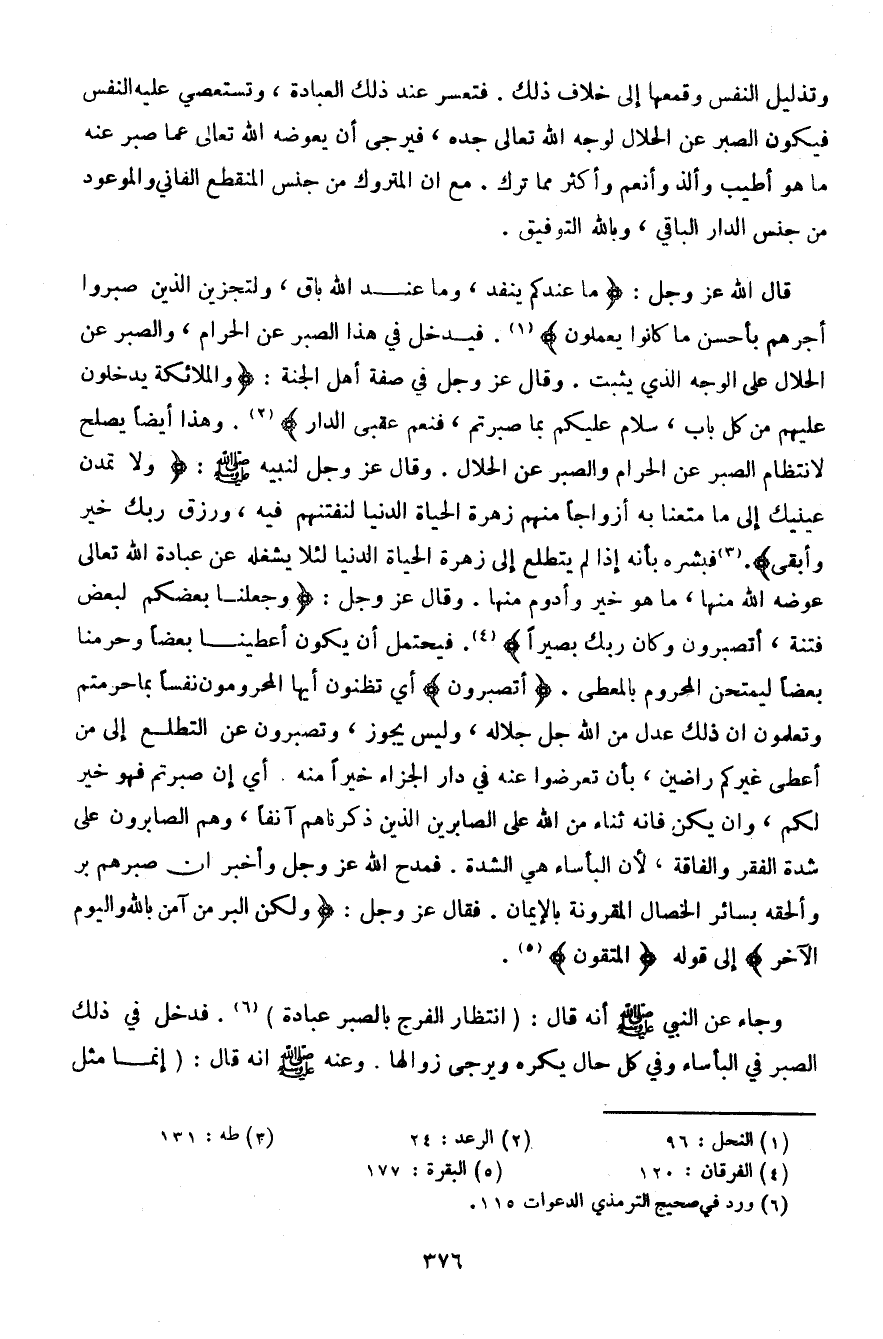 وتذليل النفس وقمعها إلى خلاف ذلك . فتعسر عند ذلك العبادة ، وتستعصي عليه النفس
فيكون الصبر عن الحلال لوجه الله تعالى جده ، فيرجى أن يعوضه الله تعالى عما صبر عنه
ما هو أطيب وألذ وأنعم وأكثر مما ترك . مع ان المتروك من جنس المنقطع الفاني والموعود
من جنس الدار الباقي ، وبالله التوفيق .
قال الله عز وجل : ﴿ ما عندكم ينفد ، وما عنـــد الله باق ، ولتجزين الذين صبروا
أجرهم بأحسن ما كانوا يعملون ﴾ (١) . فيـدخل في هذا الصبر عن الحرام ، والصبر عن
الحلال على الوجه الذي يثبت . وقال عز وجل في صفة أهل الجنة : ﴿ والملائكة يدخلون
عليهم من كل باب ، سلام عليكم بما صبرتم ، فنعم عقبى الدار ﴾ (٢) . وهذا أيضاً يصلح
لانتظام الصبر عن الحرام والصبر عن الحلال . وقال عز وجل لنبيه ﷺ : ﴿ ولا تمدن
عينيك إلى ما متعنا به أزواجاً منهم زهرة الحياة الدنيا لنفتنهم فيه ، ورزق ربك خير
وأبقى ﴾.(٣) فبشره بأنه إذا لم يتطلع إلى زهرة الحياة الدنيا لئلا يشغله عن عبادة الله تعالى
عوضه الله منها ، ما هو خير وأدوم منها . وقال عز وجل : ﴿ وجعلنـا بعضكم لبعض
فتنة ، أتصبرون وكان ربك بصيراً ﴾ (٤). فيحتمل أن يكون أعطينـــا بعضاً وحرمنا
بعضاً ليمتحن المحروم بالمعطى . ﴿ أتصبرون ﴾ أي تظنون أيها المحرومون نفساً بما حرمتم
وتعلمون ان ذلك عدل من الله جل جلاله ، وليس يجوز ، وتصبرون عن التطلـع إلى من
أعطى غيركم راضين ، بأن تعرضوا عنه في دار الجزاء خيراً منه . أي إن صبرتم فهو خير
لكم ، وان يكن فانه ثناء من الله على الصابرين الذين ذكرناهم آنفاً ، وهم الصابرون على
شدة الفقر والفاقة ، لأن البأساء هي الشدة . فمدح الله عز وجل وأخبر ان صبرهم بر
وألحقه بسائر الخصال المقرونة بالإيمان . فقال عز وجل : ﴿ ولكن البر من آمن بالله واليوم
الآخر ﴾ إلى قوله ﴿ المتقون ﴾ (٥) .
وجاء عن النبي ﷺ أنه قال : ( انتظار الفرج بالصبر عبادة ) (٦) . فدخل في ذلك
الصبر في البأساء وفي كل حال يكره ويرجى زوالها . وعنه ﷺ انه قال : ( إنمـــا مثل
(١) النحل : ٩٦ (٢) الرعد : ٢٤ (٣) طه : ١٣١
(٤) الفرقان : ١٢٠ (٥) البقرة : ١٧٧
(٦) ورد في صحيح الترمذي الدعوات ١١٥.
٣٧٦